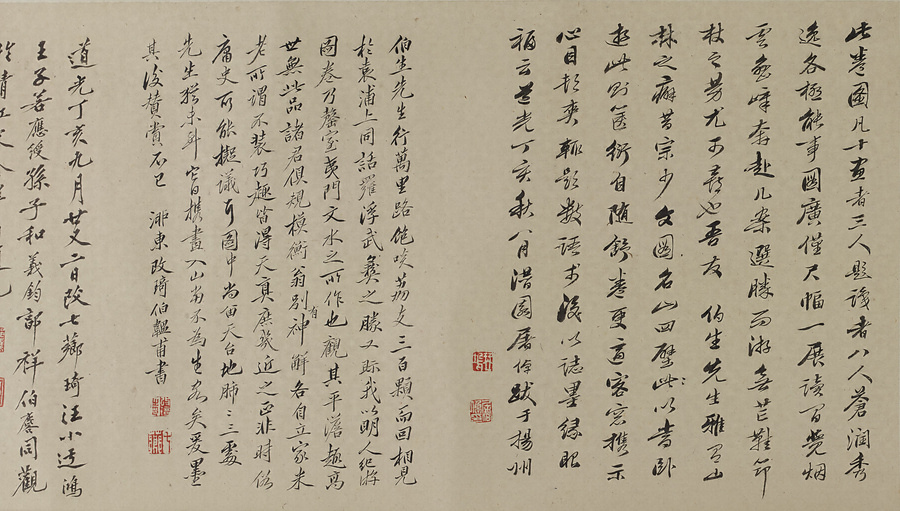 此卷圖凡十畫者三人題識者八人蒼潤秀
逸各極能事圖廣僅尺幅一展讀間覺烟
雲奔峰奔赴几案選勝而游無芒鞵笻
杖之勞尤可尋也吾友伯生先生雅有山
林之癖昔宗少文圖名山四壁此以當臥
遊此則篋衍自隨錄卷更富客窓携示
心目頓爽輒題數語於後以誌墨緣眼
福云道光丁亥秋八月潛園屠倬跋于揚州
伯生先生行萬里路飽啖荔支三百顆而回相見
於袁浦上同話羅浮武彝之勝又眎我以明人紀游
圖卷乃馨室夷門文水之所作也觀其平澹趣高
世無此品諸君俱規模衡翁別有神解各自立家未
老所謂不裝巧趣皆得天真庶幾近之正非時俗
庸史所能擬議耳圖中尚留天台地肺三三處
先生猶未到窅携畫入山當不為生客矣爰墨
其後贊賞不已 淛東改琦伯韞甫書
道光丁亥九月廿又二日改七薌琦汪小迂鴻
王子若應綬孫子和義鈞郭祥伯麐同觀
於清江